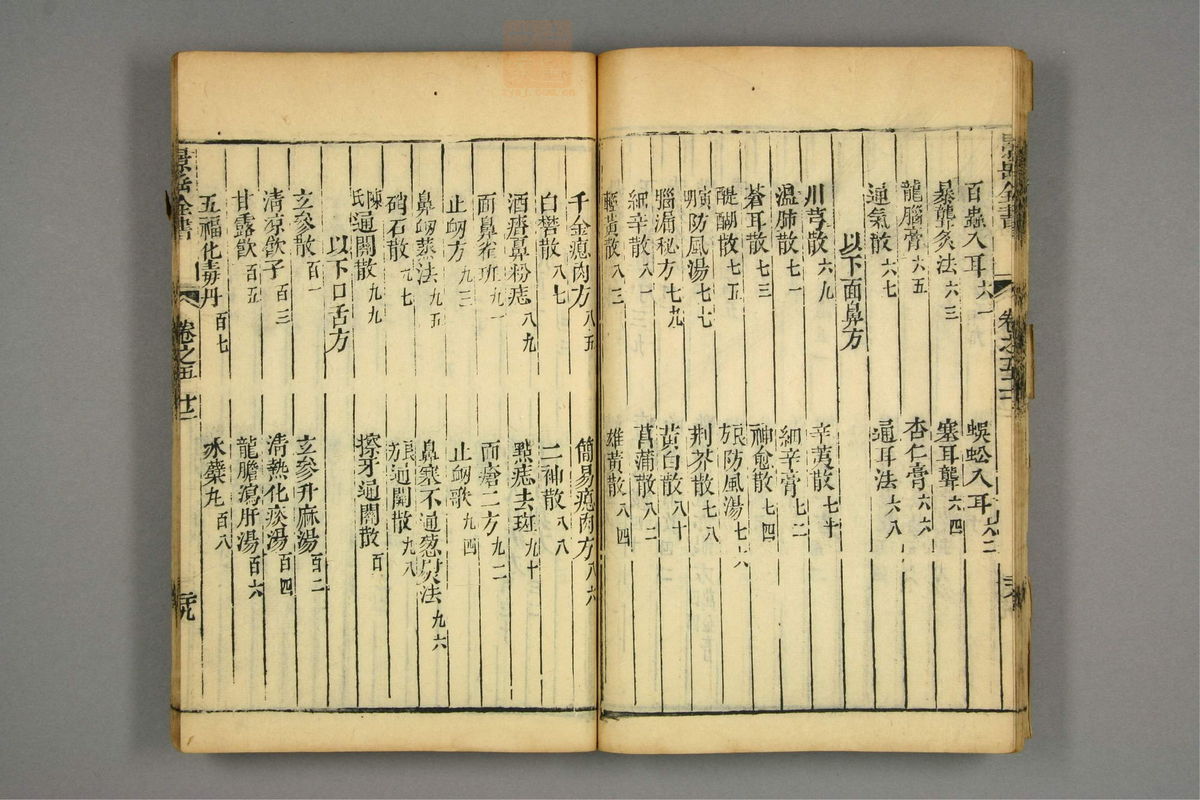 景岳全書
卷之五十二
百蟲入耳 六一
蜈蚣入耳 六二
暴聾灸法 六三
塞耳聾 六四
龍腦膏 六五
杏仁膏 六六
通氣散 六七
通耳法 六八
以下面鼻方
川芎散 六九
辛荑散 七十
溫肺散 七一
細辛膏 七二
蒼耳散 七三
神愈散 七四
醍醐散 七五
良方防風湯 七六
宣明防風湯 七七
荆芥散 七八
腦漏秘方 七九
黃白散 八十
細辛散 八一
菖蒲散 八二
黃散 八三
雄黃散 八四
千金瘜肉方 八五
簡易瘜肉方 八六
白礬散 八七
二神散 八八
酒㾴鼻粉痣 八九
點痣去斑 九十
面鼻雀班 九一
面瘡二方 九二
止衂方 九三
止衂歌 九四
鼻衂蒸法 九五
鼻塞不通葱熨法 九六
硝石散 九七
良方通關散 九八
陳氏通關散 九九
擦牙通關散 百
以下口舌方
玄參散 百一
玄參升麻湯 百二
清凉飲子 百三
清熱化痰湯 百四
甘露飲 百五
龍膽瀉肝湯 百六
五福化毒丹 百七
氷蘗丸 百八
景岳全書
卷之五